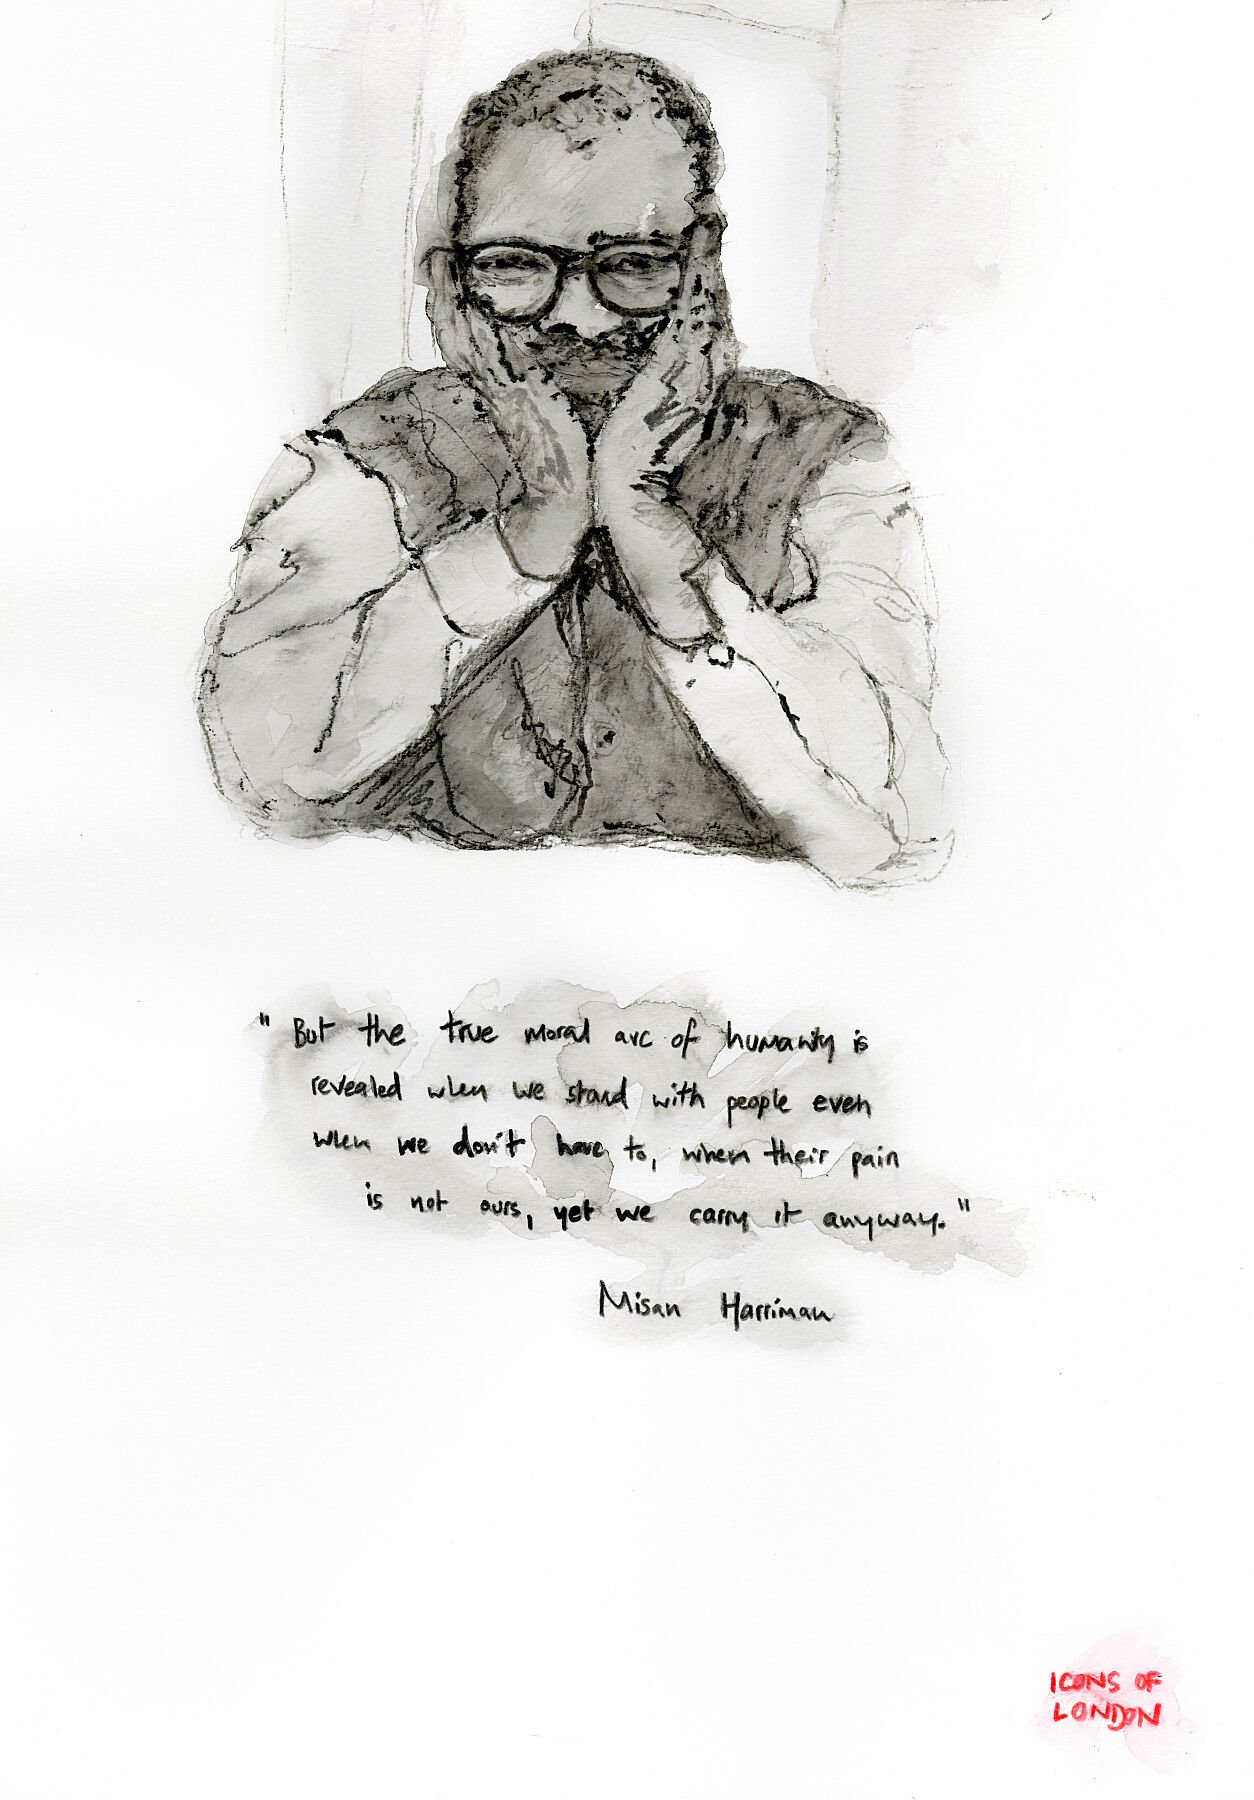 "But the true moral arc of humanity is
revealed when we stand with people even
when we don't have to, when their pain
is not ours, yet we carry it anyway."
Misan Harriman
ICONS OF
LONDON